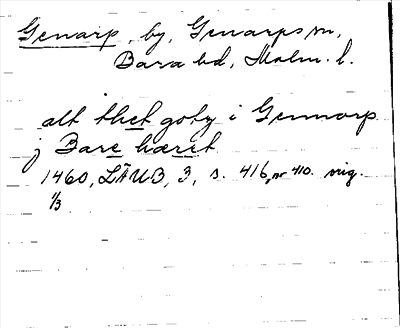 Genarp, by, Genarps sn,
Bara hd, Malm. l.
alt thet gotz i Gennarp
j Bare hæret
1460, LÄUB, 3, s. 416, nr 410. orig.
1/3